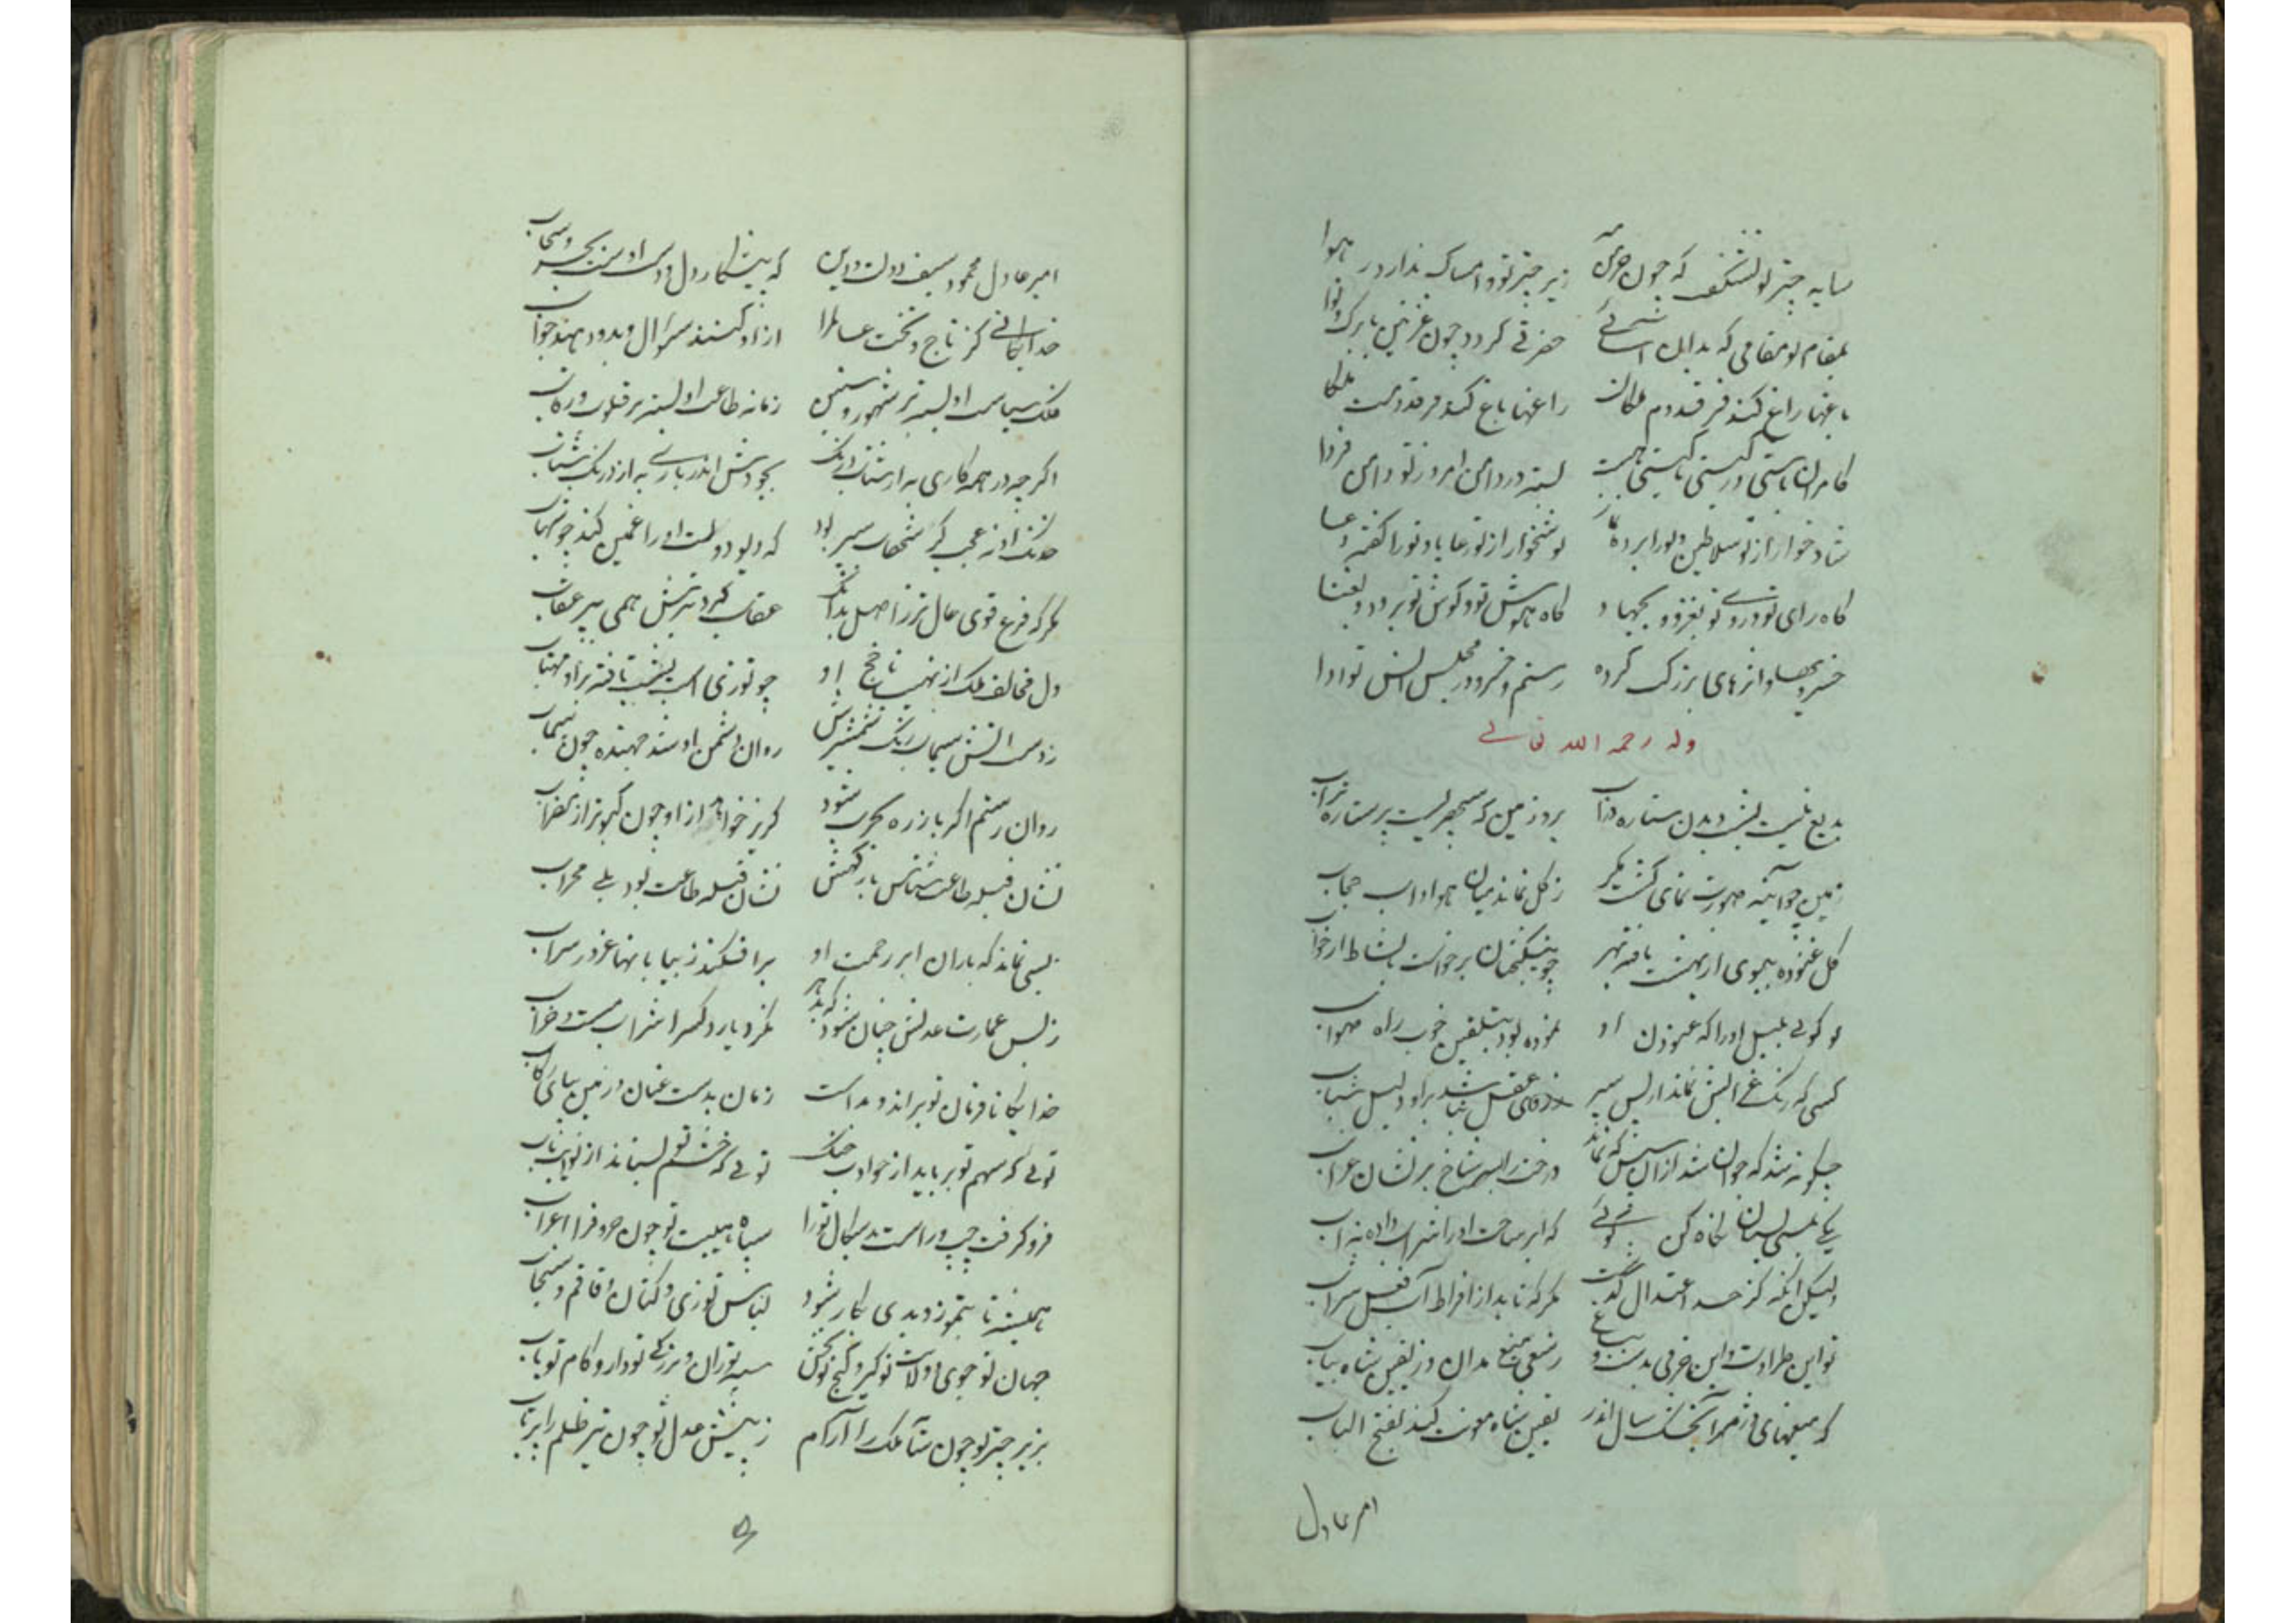 سایه چتر تو نشگفت که چون حری زیر چتر تو و امساک ندارد در هوا
بمقام تو مقامی که بدان آسائی حضرتی گردد چون غزنین با برگ و نوا
باغها راغ کند فر قدوم ملکان راغها باغ کند فر قدومت ملکا
کامران باستی در گیتی تا گیتی هست بسته در دامن امروز تو دامن فردا
شاد خوار از تو سلاطین و تو را برده نماز نوشخوار از تو رعایا و تو را گفته دعا
گاه رای تو در روی تو بغزو و بجهاد گاه هوش تو و گوش تو برود و بغنا
خسرو بعصا واژدهای بزرگ کرده رستم و خسرو در مجلس انس تو ادا
وله رحمه الله تعالی
بدیع نیست بشب دیدن ستاره در آب بروز بین که سپهریست پر ستاره تراب
زمین چو آینه صورت نمای گشت مگر ز گل نماند میان هوا و آب حجاب
گل غنوده ببوی از بهشت یافته بهر چو نیکبختان برخواست با نشاط از خواب
تو گوئی بلبل او را که غنودن او نموده بود بتلقین خوب راه صواب
کسی که رنگ غمانش نماند از پس سیر درخت را سر شاخ بر نشان غراب
چگونه شد که جوان شد از آن سپس که نماند
یکی بمستی بستان نگاه کن گوئی که ابر ساخت او را شراب داده نه آب
ولیکن آنکه کز حد اعتدال گذشت مگر که ناید از افراط آب فعل سراب
تو این طراوت و این خرمی بدشت و بباغ ز سعی میغ مدان و ز یقین شاه بیاب
که میغهای در ثمر آنجنک سال اندر یقین شاه موئت کند بفتح الباب
امیر عادل
امیر عادل محمود سیف دولت و دین که پیشکار دل و دست اوست بحر و سحاب
خدایگانی کز تاج و تخت عالم را از او کنند سؤال و بدو دهند جواب
ملک سیاست او بسته بر شهور و سنین زمانه طاعت او بسته بر قلوب و رقاب
اگر چه در همه کاری به از شتاب درنگ بجودش اندر باری به از درنگ شتاب
که دیو دولت او را غمین کند چو شهاب
مگر که فرع قوی حال تر ز اصل بدانک عقاب گیرد تیرش همی بپر عقاب
دل مخالف ملک از نهیب ناچخ او چو توزی است بشب یافته بر او مهتاب
ز دست آتش سیماب رنگ شمشیرش روان دشمن او شد جهنده چون سیماب
روان رستم اگر باز ره بحرب شود گریز خواهد از او چون کبوتر از مضراب
نشان قبله طاعت شناس بارگهش نشان قبله طاعت بود بلی محراب
بسی نماند که باران ابر رحمت او برافکند ز بیابانها غرور سراب
ز بس عمارت عدلش چنان شود که بدهر مگر دیار دگر را شراب مست و خراب
خدایگانا فرمان تو براند و داشت زمان بدست عنان و زمین بپای رکاب
توئی که سهم تو برباید از حوادث چنگ توئی که خشم تو بستاند از نوایب ناب
فرو گرفت چپ و راست بدسگال تو را سپاه هیبت تو چون حروف را اعراب
همیشه تا بتموز و بدی بکار شود لباس توزی و کتان و قاقم و سنجاب
جهان تو جوی و ولایت تو گیر و گنج تو بخش سپه تو ران و بزرگی تو دار و کام تو یاب
بزیر چتر تو چون شاه ملک را آرام ز پیش عدل تو چون تیر ظلم را پرتاب